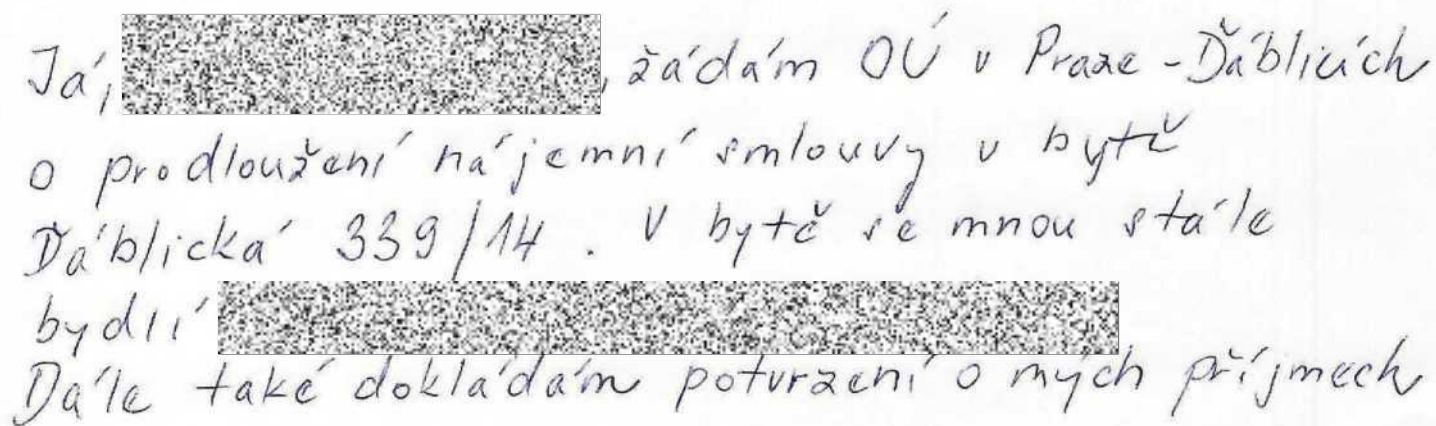 Já, , žádám OÚ v Praze-Ďáblicích
o prodloužení nájemní smlouvy v bytě
Ďáblická 339/14. V bytě se mnou stále
bydlí
Dále také dokládám potvrzení o mých příjmech